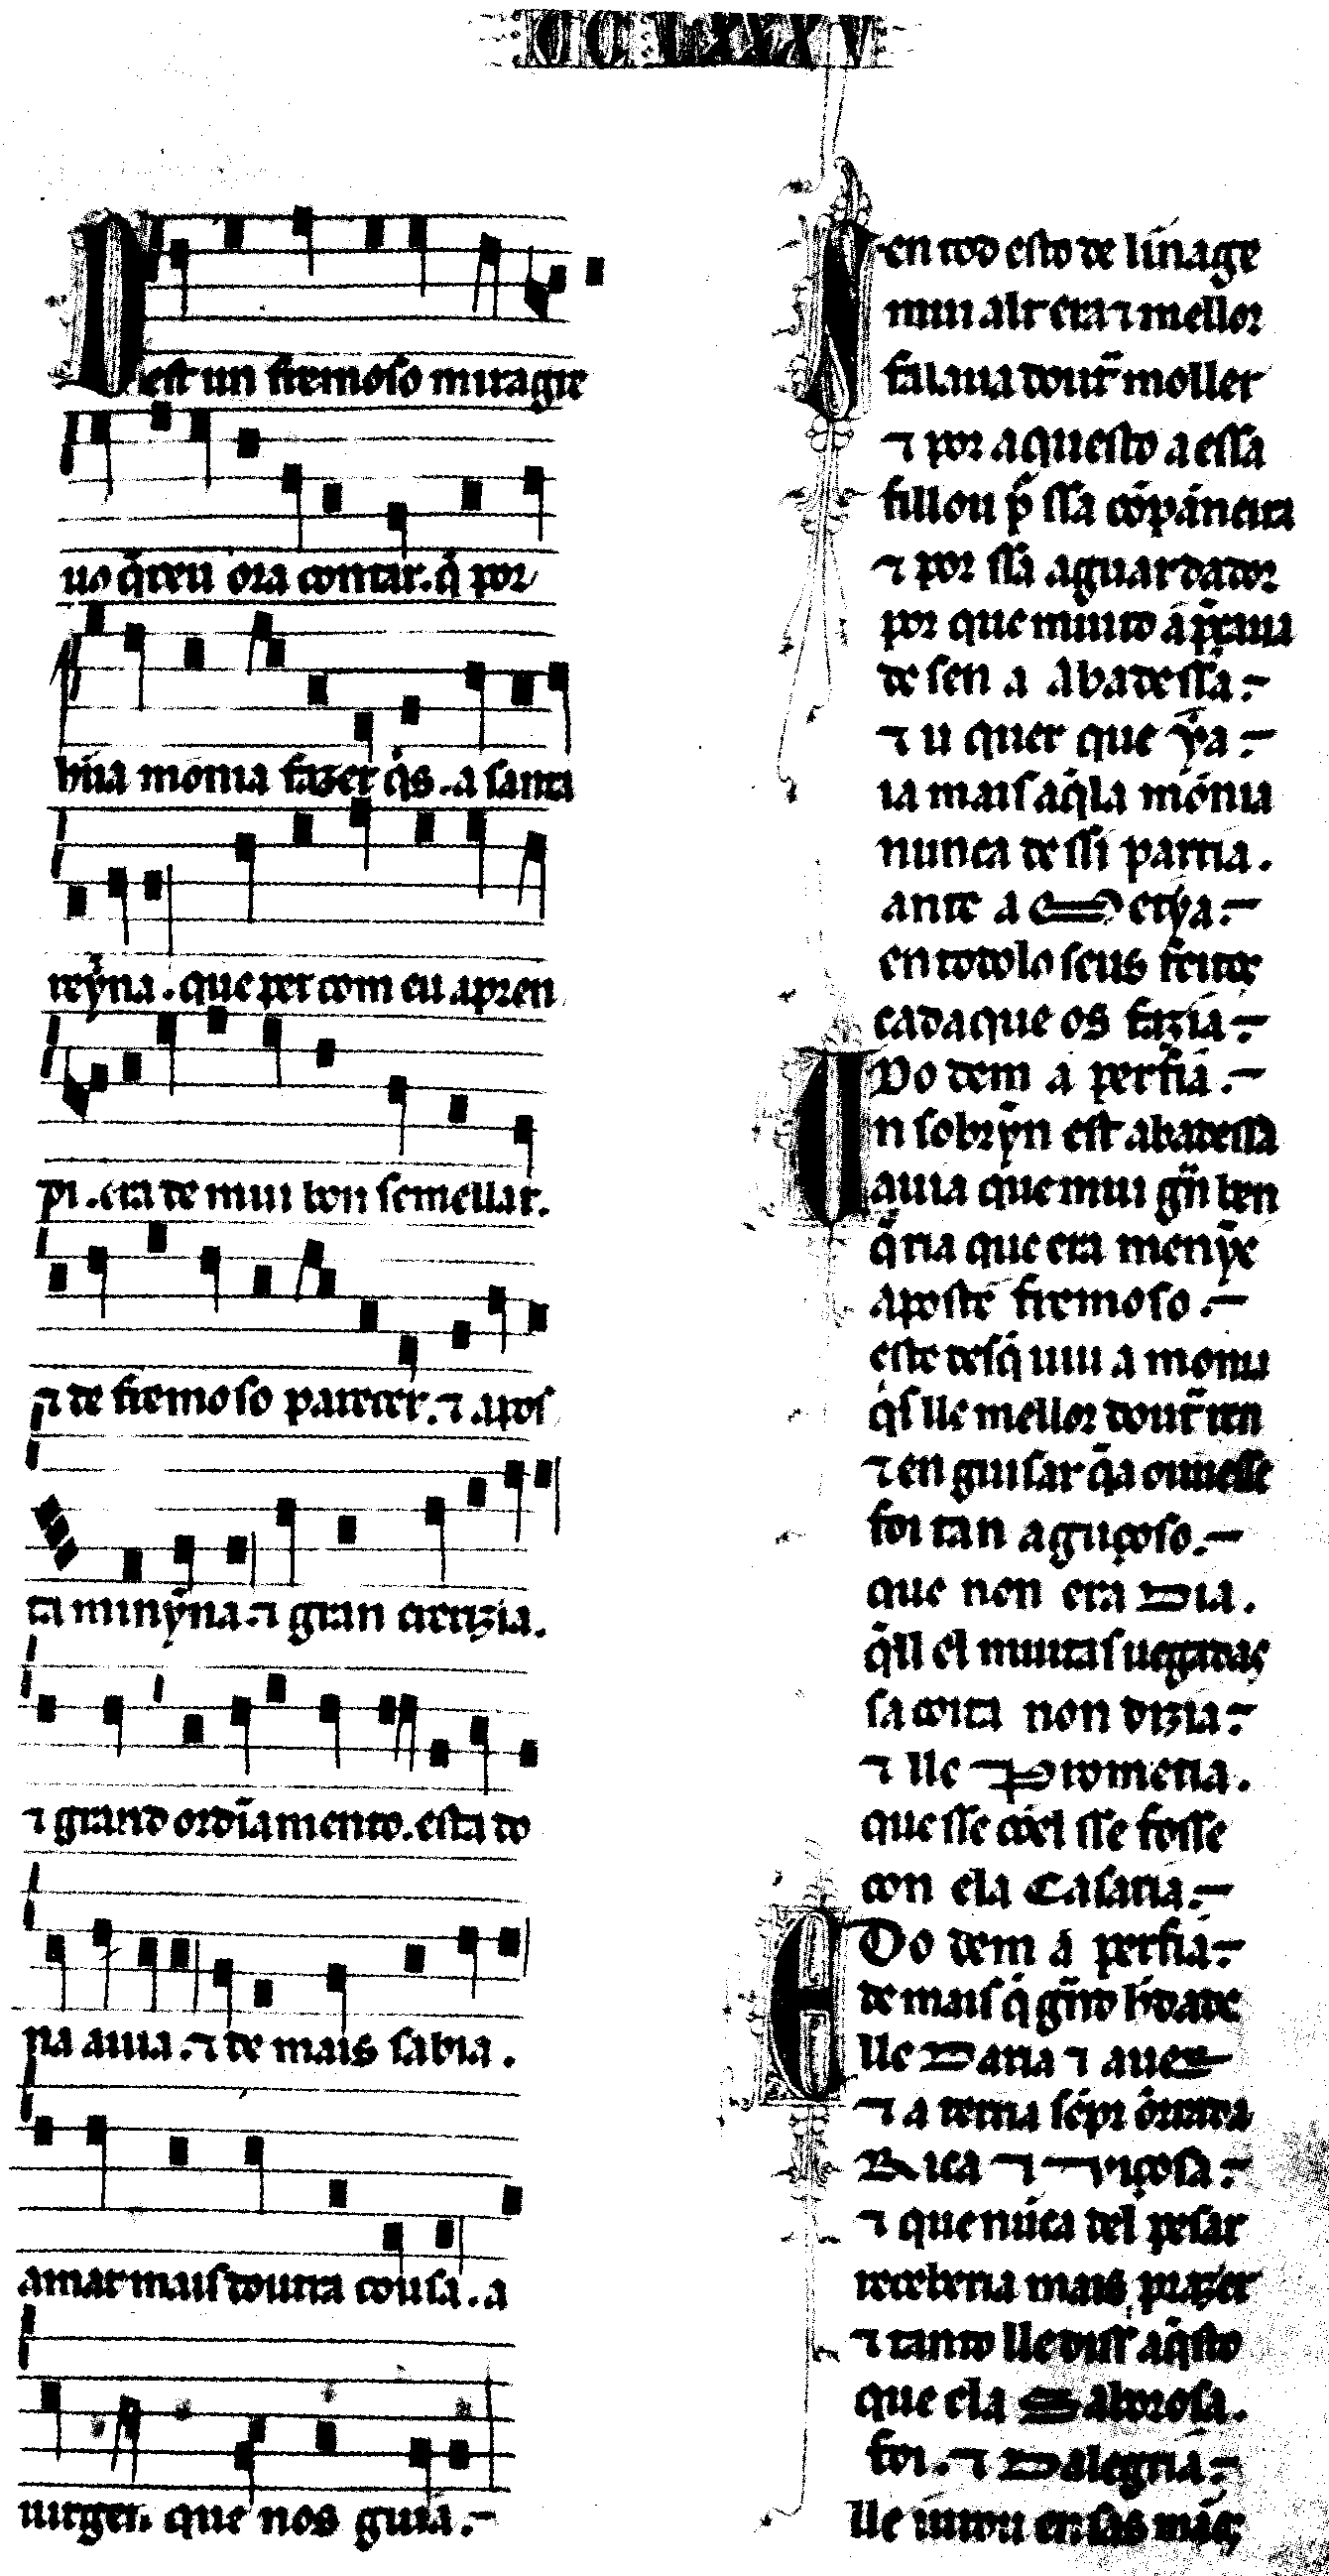 CCLXXXV
Dest un fremoso miragre
uo q̄ teu ora contar. q̄ por
hũa monia fazer q̇s. a santa
reỹna. que per com eu apren
pi. era de mui bon semellar.
⁊ de fremoso pareçer. ⁊ apos
ta minỹna. ⁊ gran crerizia.
⁊ grand ordĩamento. esta do
na auia. ⁊ de mais sabia.
amar mais doutra cousa. a
uirgen que nos guia.
E en tod esto de linage
mui alt era ⁊ mellor
falaua doutr̃ moller
⁊ por aquesto a essa
fillou p̃ ssa cõpãneira
⁊ por ssa aguardador
por que muito a p̃çaua
de sen a Abadessa.
⁊ u quer que ỹa.
ia mais aq̄la mónia
nunca de ssi partia.
ante a Metya.
en todolo seus feitos
cada que os fazia.
Do dem a perfia.
Un sobrỹn est abadessa
auia que mui gñ ben
q̄ria que era menỹe
aposte fremoso.
este desq̄ uiu a monia
q̇s lle mellor doutr̃ ren
⁊ en guisar q̄ a ouuesse
foi tan aguçoso.
que nen era Dia.
q̄ll el muitas uegadas
sa coita non dizia.
⁊ lle Prometia.
que sse cõel sse fosse
con ela Casaria.
Do dem a perfia.
E de mais q̄ gñd h̃dade
lle Daria ⁊ auer
⁊ a terria sẽpr onrrada
Rica ⁊ Viçosa.
⁊ que nũca del pesar
reçeberia mais prazer
⁊ tanto lle diss aq̄sto
que ela Saborosa.
foi. ⁊ Dalegria.
lle iurou en sas mãos